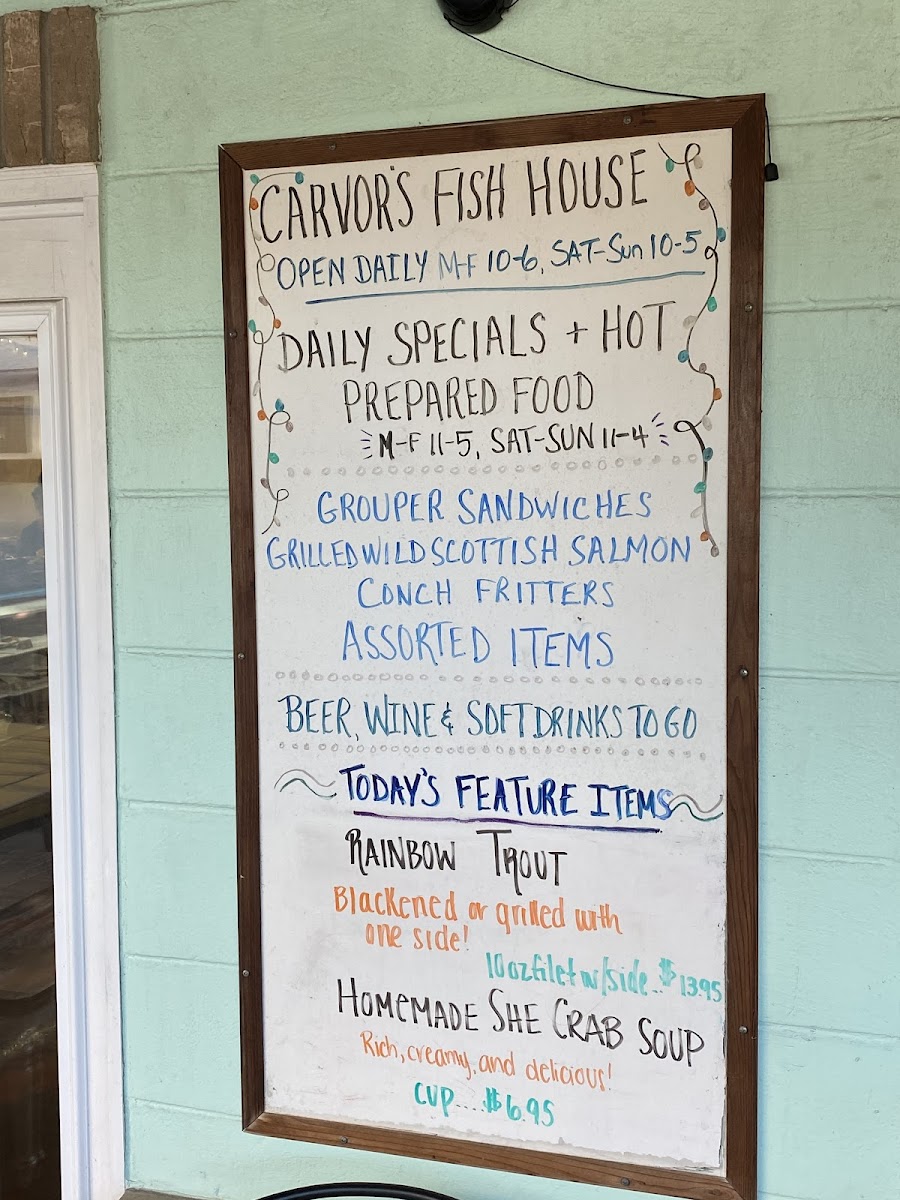 CARVOR'S FISH HOUSE
OPEN DAILY M-F 10-6, SAT-Sun 10-5
DAILY SPECIALS + HOT
PREPARED FOOD
M-F 11-5, SAT-SUN 11-4
GROUPER SANDWICHES
GRILLED WILD SCOTTISH SALMON
CONCH FRITTERS
ASSORTED ITEMS
BEER, WINE & SOFT DRINKS TO GO
TODAY'S FEATURE ITEMS
RAINBOW TROUT
Blackened or grilled with
one side!
10 oz filet w/side..$13.95
HOMEMADE SHE CRAB SOUP
Rich, creamy, and delicious!
CUP....$6.95